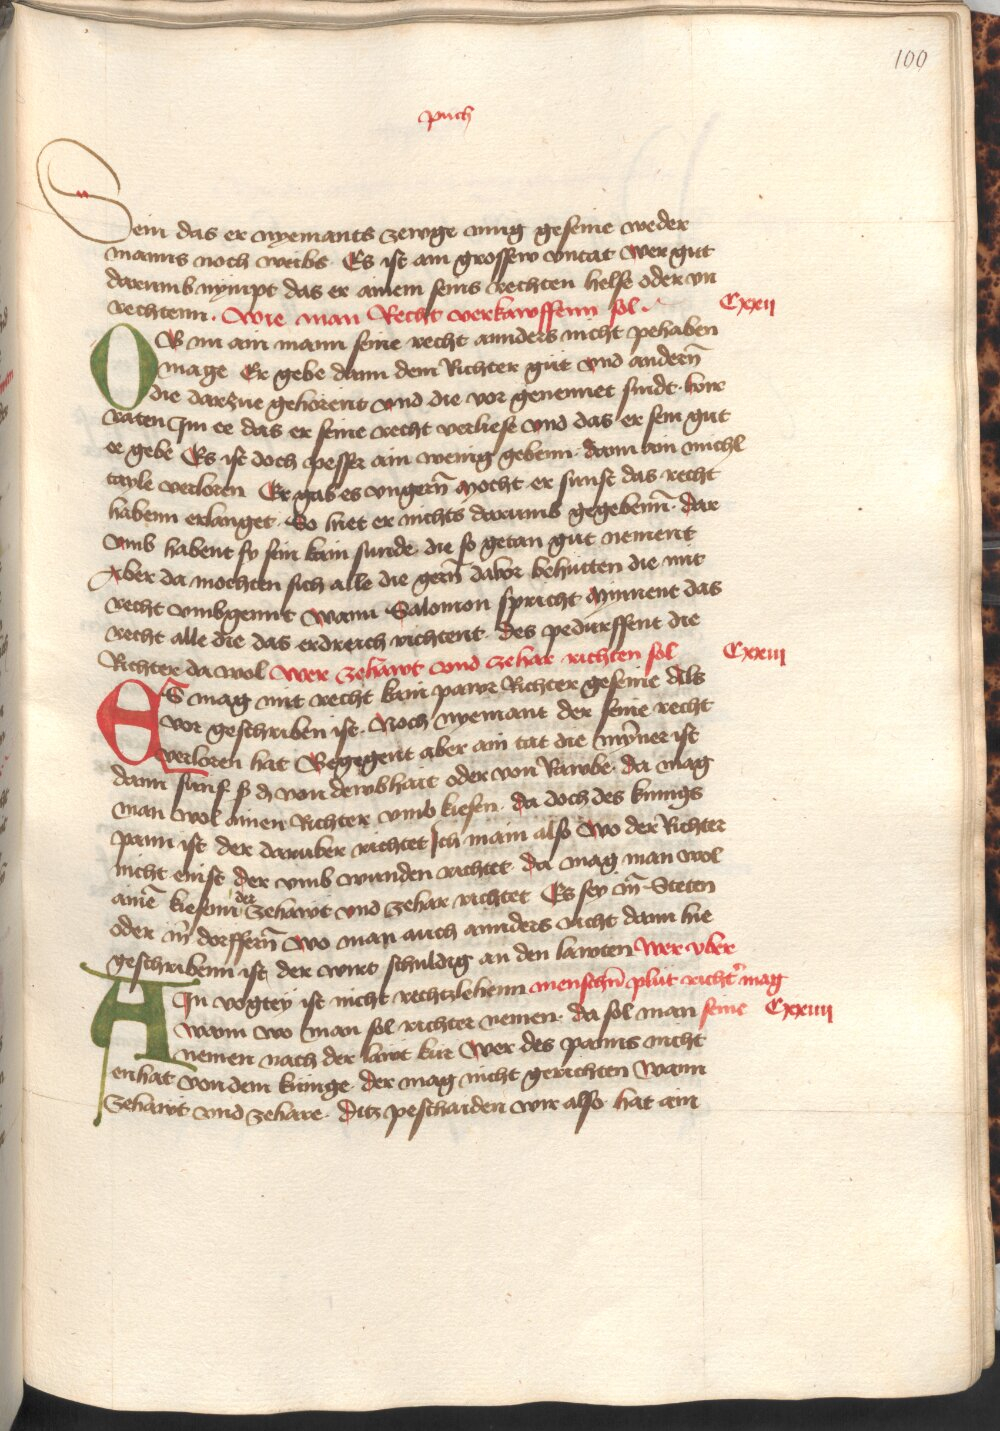 100
puch
Sein das er nyemants zewge mug gesenie weder
manns noch weibs. Es ist ain grossew vntat Wer gut
darumb nympt das er ainem seins rechten helffe oder vn
rechtenn. Wie man Recht verkawffenn sol. Cxxij
OB nu ain mann seine recht annders nicht pehaben
mage Er gebe dann dem Richter gut vnd andern̄
die darzue gehorent vnd die vor genennet sindt. wir
raten Im ee das er seine recht verliese vnd das er sein gut
ee gebe Es ist doch pesser ain wenig gebenn. dann ain michl
tayle verloren Er gab es vngern̄ Mocht er sunst das recht
habenn erlanget. So hiet er nichts darumb gegebenn̄. Dar
vmb habent sy sein kain sunde. die so getan gut nement
Aber da mochten sich alle die gern̄ davor behuetten die mit
recht vmbgennt Wann Salomon spricht Mynnent das
recht alle die das erdreich richtent. Des pedurffent die
Richter da wol Wer zehawt vnd zehar richten sol Cxxiij
ES mag mit recht kain pawr Richter gesenie Als
vor geschriben ist. Noch nyemant der seine recht
verloren hat Begegent aber ain tat die myner ist
dann funf ß ₰ von dewbhait oder von Rawbe. da mag
man wol ainen Richter vmb kiesen. da doch des kunigs
pann ist der daruber richtet Ich main also Wo der Richter
nicht enist der vmb wunden richtet. da mag man wol
aine kiesenn der zehawt vnd zehar richtet Es sey in Steten
oder in dorffern̄ Wo man auch annders richt dann hie
geschribenn ist der wirt schuldig an den lawten Wer vber
AIn vogtey ist nicht rechtzlehenn menschn̄ plut richt͛ mag
wann wo man sol richter nemen. da sol man seine Cxxiiij
nemen nach der lawt kur Wer des panns nicht
enhat von dem kunige. der mag nicht gerichten Wann
zehawt vnd zehare. Ditz peschaiden wir also. hat ain